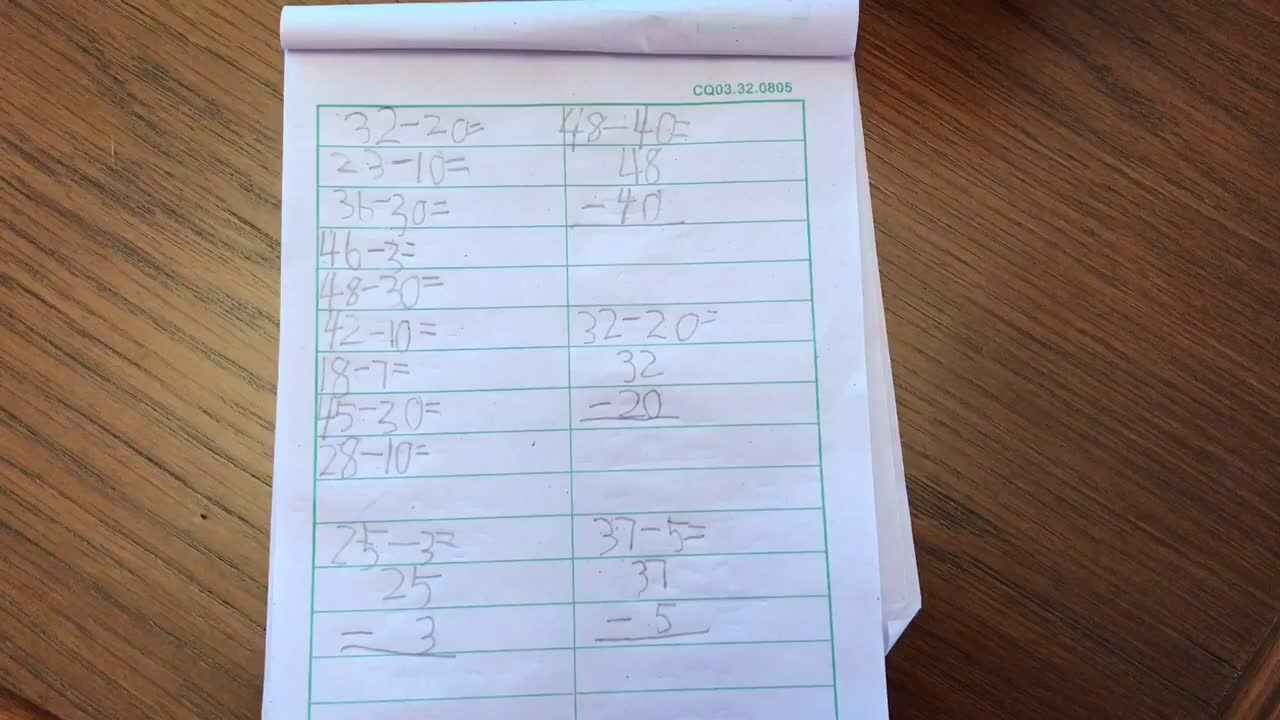 CQ03.32.0805
32-20=
23-10=
36-30=
46-3=
48-30=
42-10=
18-7=
45-30=
28-10=
48-40=
48
-40
32-20=
32
-20
25-3=
25
- 3
37-5=
37
- 5